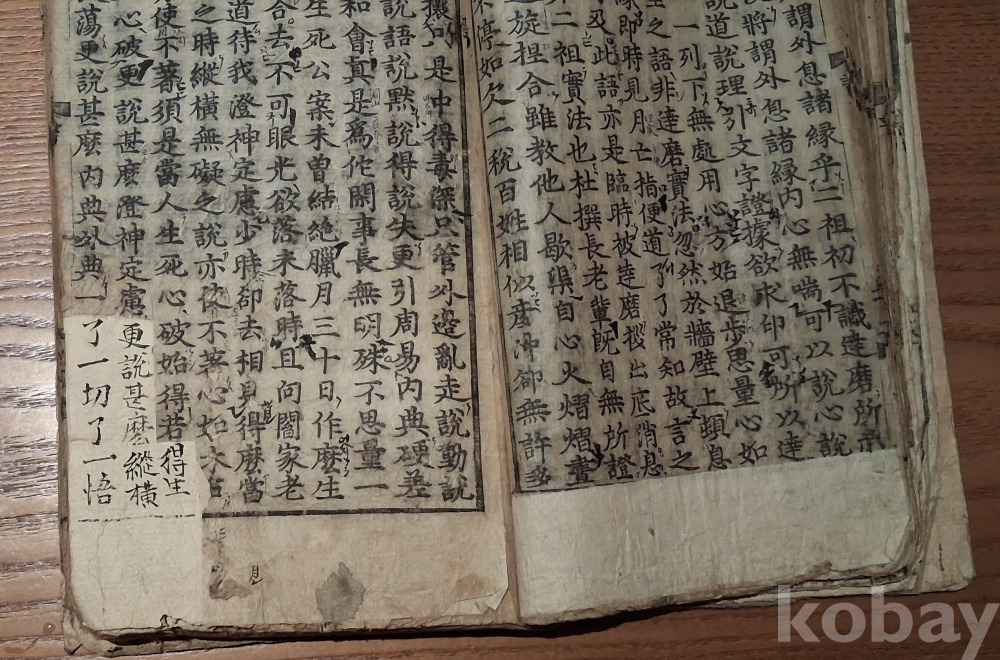 謂外息諸緣乎二祖初不識達磨所示
將謂外息諸緣內心無喘可以說心說
說道說理引文字證據欲求印可所以達
一列下無處用心方始退步思量心如
之語非達磨實法忽然於牆壁上頓息
緣即時見月亡指便道了了常知故言之
又此語亦是臨時被達磨拶出底消息
二祖實法也杜撰長老輩旣自無所證
旋捏合雖教他人歇渠自心火熠熠晝
停如欠二稅百姓相似彥沖卻無許多
攘只是中得毒深只管外邊亂走說動說
說語說默說得說失更引周易內典硬差
和會真是爲佗閑事長無明殊不思量一
生死公案未曾結絕臘月三十日作麼生
合去不可眼光欲落未落時且向閻家老
道待我澄神定慮少時卻去相見得麼當
之時縱橫無礙之說亦使不著心如木石
使不著須是當人生死心破始得若得生
心破更說甚麼澄神定慮更說甚麼縱橫
蕩更說甚麼內典外典一了一切了一悟
見
kobay